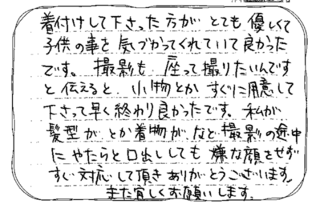 着付けして下さった方が とても 優しくて
子供の事を 気づかってくれていて良かった
です。 撮影も 座って撮りたいんです
と伝えると 小物とか すぐに用意して
下さって早く終わり良かったです。私が
髪型が とか着物が など撮影の途中
に やたらと口出ししても 嫌な顔をせず
すぐ対応して頂き ありがとうございます。
また宜しくお願いします。